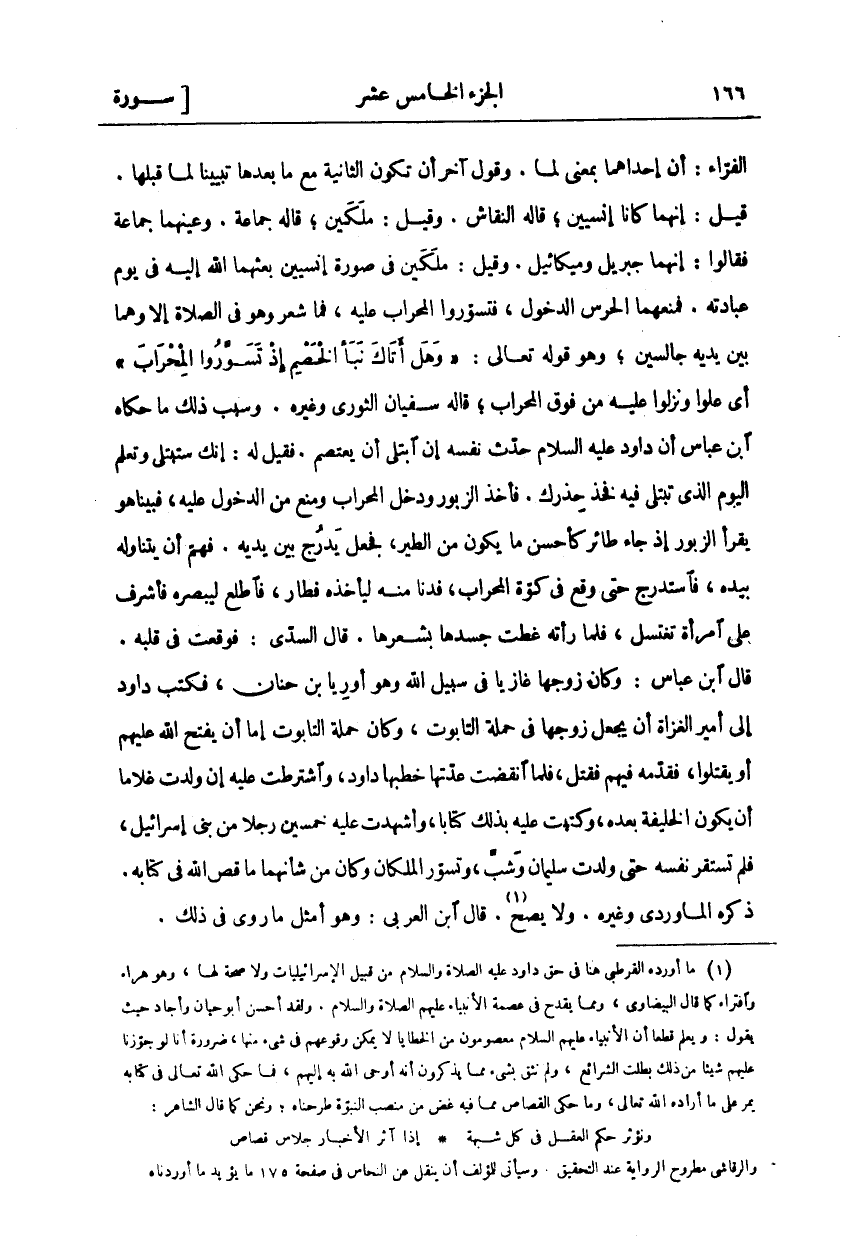 ١٦٦ الجزء الخامس عشر [ سورة
الفراء : أن إحداهما بمعنى لما . وقول آخر أن تكون الثانية مع ما بعدها تبيينا لما قبلها .
قيل : إنهما كانا إنسيين ؛ قاله النقاش . وقيل : ملَكَين ؛ قاله جماعة . وعينهما جماعة
فقالوا : إنهما جبريل وميكائيل . وقيل : ملَكَين فى صورة إنسيين بعثهما الله إليه فى يوم
عبادته . فمنعهما الحرس الدخول ، فتسوّروا المحراب عليه ، فما شعر وهو فى الصلاة إلا وهما
بين يديه جالسين ؛ وهو قوله تعالى : « وَهَل أَتَاكَ نَبَأُ الْخَصْمِ إِذْ تَسَوَّرُوا الْمِحْرَابَ »
أى علوا ونزلوا عليه من فوق المحراب ؛ قاله سفيان الثورى وغيره . وسبب ذلك ما حكاه
آبن عباس أن داود عليه السلام حدّث نفسه إن آبتلى أن يعتصم . فقيل له : إنك ستبتلى وتعلم
اليوم الذى تبتلى فيه فخذ حِذرك . فأخذ الزبور ودخل المحراب ومنع من الدخول عليه، فبينا هو
يقرأ الزبور إذ جاء طائر كأحسن ما يكون من الطير، فجعل يَدرُج بين يديه . فهمّ أن يتناوله
بيده ، فآستدرج حتى وقع فى كوّة المحراب، فدنا منه ليأخذه فطار ، فآطلع ليبصره فأشرف
على آمرأة تغتسل ، فلما رأته غطت جسدها بشعرها . قال السدّى : فوقعت فى قلبه .
قال آبن عباس : وكان زوجها غازيا فى سبيل الله وهو أوريا بن حنان ، فكتب داود
إلى أمير الغزاة أن يجعل زوجها فى حملة التابوت ، وكان حملة التابوت إما أن يفتح الله عليهم
أو يقتلوا، فقدّمه فيهم فقتل، فلما آنقضت عدّتها خطبها داود، وآشترطت عليه إن ولدت غلاما
أن يكون الخليفة بعده، وكتبت عليه بذلك كتابا، وأشهدت عليه خمسين رجلا من بنى إسرائيل ،
فلم تستقر نفسه حتى ولدت سليمان وَشَبَّ ، وتسوّر الملكان وكان من شأنهما ما قص الله فى كتابه.
ذكره الماوردى وغيره . ولا يصح(١) . قال آبن العربى : وهو أمثل ما روى فى ذلك .
(١) ما أورده القرطبي هنا فى حق داود عليه الصلاة والسلام من قبيل الإسرائيليات ولا صحة لها ، وهو هراء
وآفتراء كما قال البيضاوى ، ومما يقدح فى عصمة الأنبياء عليهم الصلاة والسلام . ولقد أحسن أبو حيان وأجاد حيث
يقول : ويعلم قطعا أن الأنبياء عليهم السلام معصومون من الخطايا لا يمكن وقوعهم فى شىء منها، ضرورة أنا لو جوّزنا
عليهم شيئا من ذلك بطلت الشرائع ، ولم نثق بشىء مما يذكرون أنه أوحى الله به إليهم ، فما حكى الله تعالى فى كتابه
يمر على ما أراده الله تعالى، وما حكى القصاص مما فيه غض من منصب النبوّة طرحناه ؛ ونحن كما قال الشاعر :
ونؤثر حكم العقل فى كل شبهة * إذا آثر الأخبار جلاس قصاص
والرقاشى مطروح الرواية عند التحقيق . وسيأتى للؤلف أن ينقل عن النحاس فى صفحة ١٧٥ ما يؤيد ما أوردناه